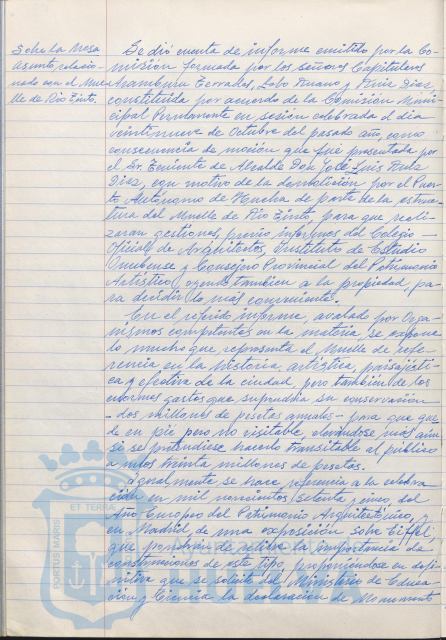 Sobre la Mesa
asunto relacio-
nado con el Mue-
lle de Rio Tinto.
Se dió cuenta de informe emitido por la Co-
misión formada por los señores Capitulares
Aramburu Terrades, Lobo Amano y Ruiz Diaz,
constituida por acuerdo de la Comision Muni-
cipal Permanente en sesión celebrada el dia
veintinueve de Octubre del pasado año como
consecuencia de moción que fué presentada por
el Sr. Teniente de Alcalde Don José Luis Ruiz
Diaz, con motivo de la demolición por el Puer-
to Autónomo de Huelva de parte de la estruc-
tura del Muelle de Rio Tinto, para que reali-
zaran gestiones, previo informes del Colegio
Oficial de Arquitectos, Instituto de Estudio
Onubense y Consejo Provincial del Patrimonio
Artistico, oyendo tambien a la propiedad, pa-
ra decidir lo mas conveniente.
En el referido informe, avalado por Orga-
nismos competentes en la materia, se expone
lo mucho que representa el Muelle de refe-
rencia en la historia, artistica, paisajisti-
ca y efectiva de la ciudad, pero tambien de los
enormes gastos que supondria su conservación
- dos millones de pesetas anuales - para que que-
de en pie pero no visitable, elevandose mas aun
si se pretendiese hacerlo transitable al público
a unos treinta millones de pesetas.
Igualmente se hace referencia a la celebra-
ción en mil novecientos setenta y cinco del
Año Europeo del Patrimonio Arquitectónico, y
en Madrid de una exposición sobre Eiffel,
que pondrian de relieve la importancia de
construcciones de este tipo, proponiendose en defi-
nitiva que se solicite del Ministerio de Educa-
ción y Ciencia la declaración de Monumento
PORTUS MARIS
ET TERRAE